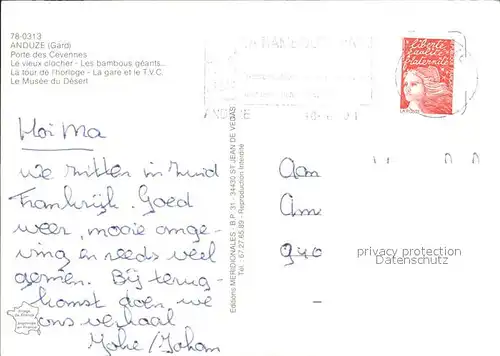 78-0313
ANDUZE (Gard)
Porte des Cévennes
Le vieux clocher - Les bambous géants...
La tour de l'horloge - La gare et le T.V.C.
Le Musée du Désert
ANDUZE
liberté
égalité
fraternité
LA POSTE
Hoi Ma
We zitten in Zuid
Frankrijk. Goed
weer, mooie omge-
ving en reeds veel
gezien. Bij terug-
komst doen we
ons verhaal
Johan
Editions MERIDIONALES - B.P. 31 - 34430 ST JEAN DE VEDAS
Tél. : 67.27.65.89 - Reproduction Interdite
Aan
940
privacy protection
Datenschutz
Image
de France
imprimée
en France